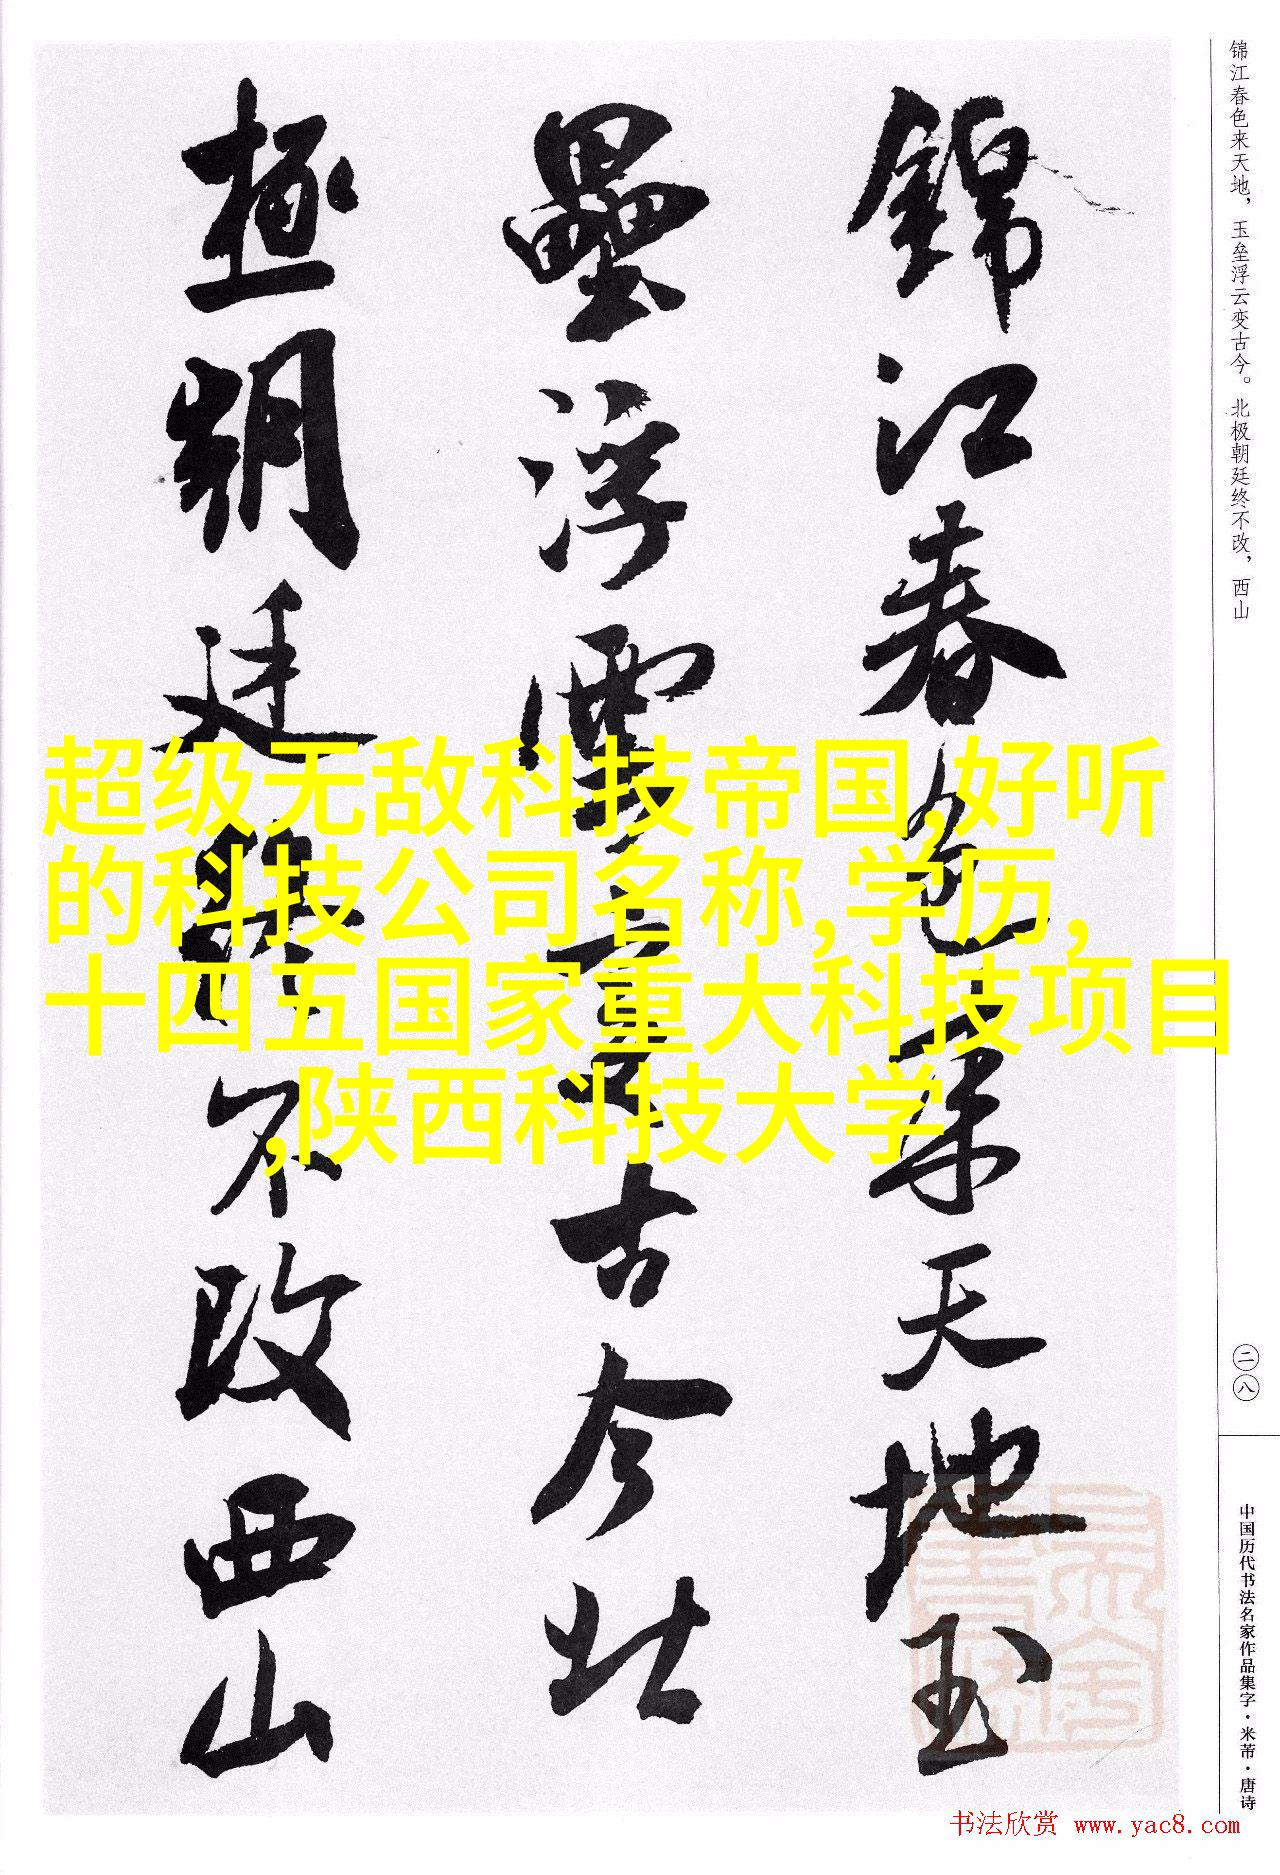 锦江春色来天地，玉垒浮云变古今。北极朝廷终不改，西山
錦江春色来天地玉
壘浮雲變古今北
極朝廷終不改西山
超级无敌科技帝国,好听
的科技公司名称,学历,
十四五国家重大科技项目
,陕西科技大学
二八
中国历代书法名家作品集字·米芾·唐诗
书法欣赏 www.yac8.com